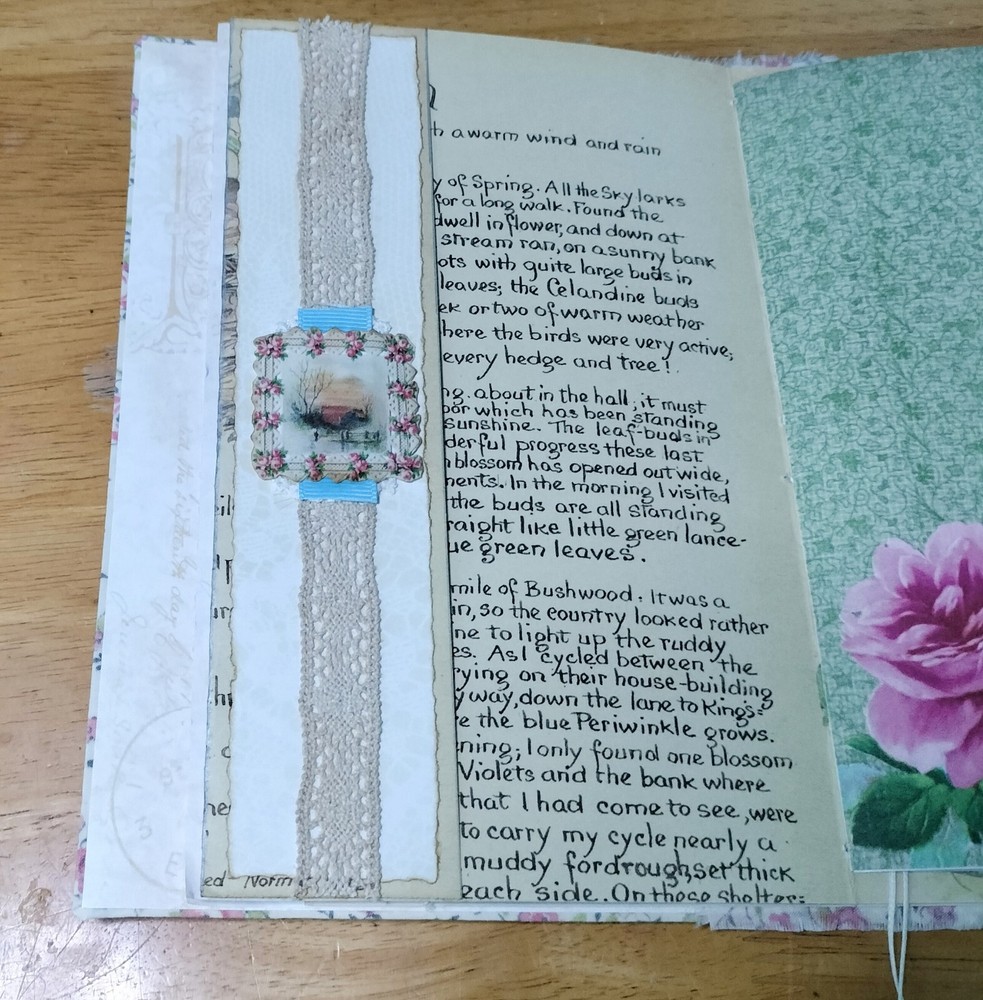 a warm wind and rain
of Spring. All the Sky larks
for a long walk. Found the
dwell in flower, and down at
stream ran, on a sunny bank
ots with quite large buds in
leaves; the Celandine buds
ek or two of warm weather
here the birds were very active;
every hedge and tree!
ng. about in the hall; it must
oor which has been standing
sunshine. The leaf-buds in
derful progress these last
blossom has opened out wide,
ments. In the morning I visited
the buds are all standing
raight like little green lance-
ue green leaves.
mile of Bushwood. It was a
in, so the country looked rather
ne to light up the ruddy
es. As I cycled between the
ying on their house-building
y way, down the lane to Kings=
e the blue Periwinkle grows.
ning; I only found one blossom
Violets and the bank where
that I had come to see, were
to carry my cycle nearly a
muddy fordrough, set thick
each side. On those shelter=
ed Norm